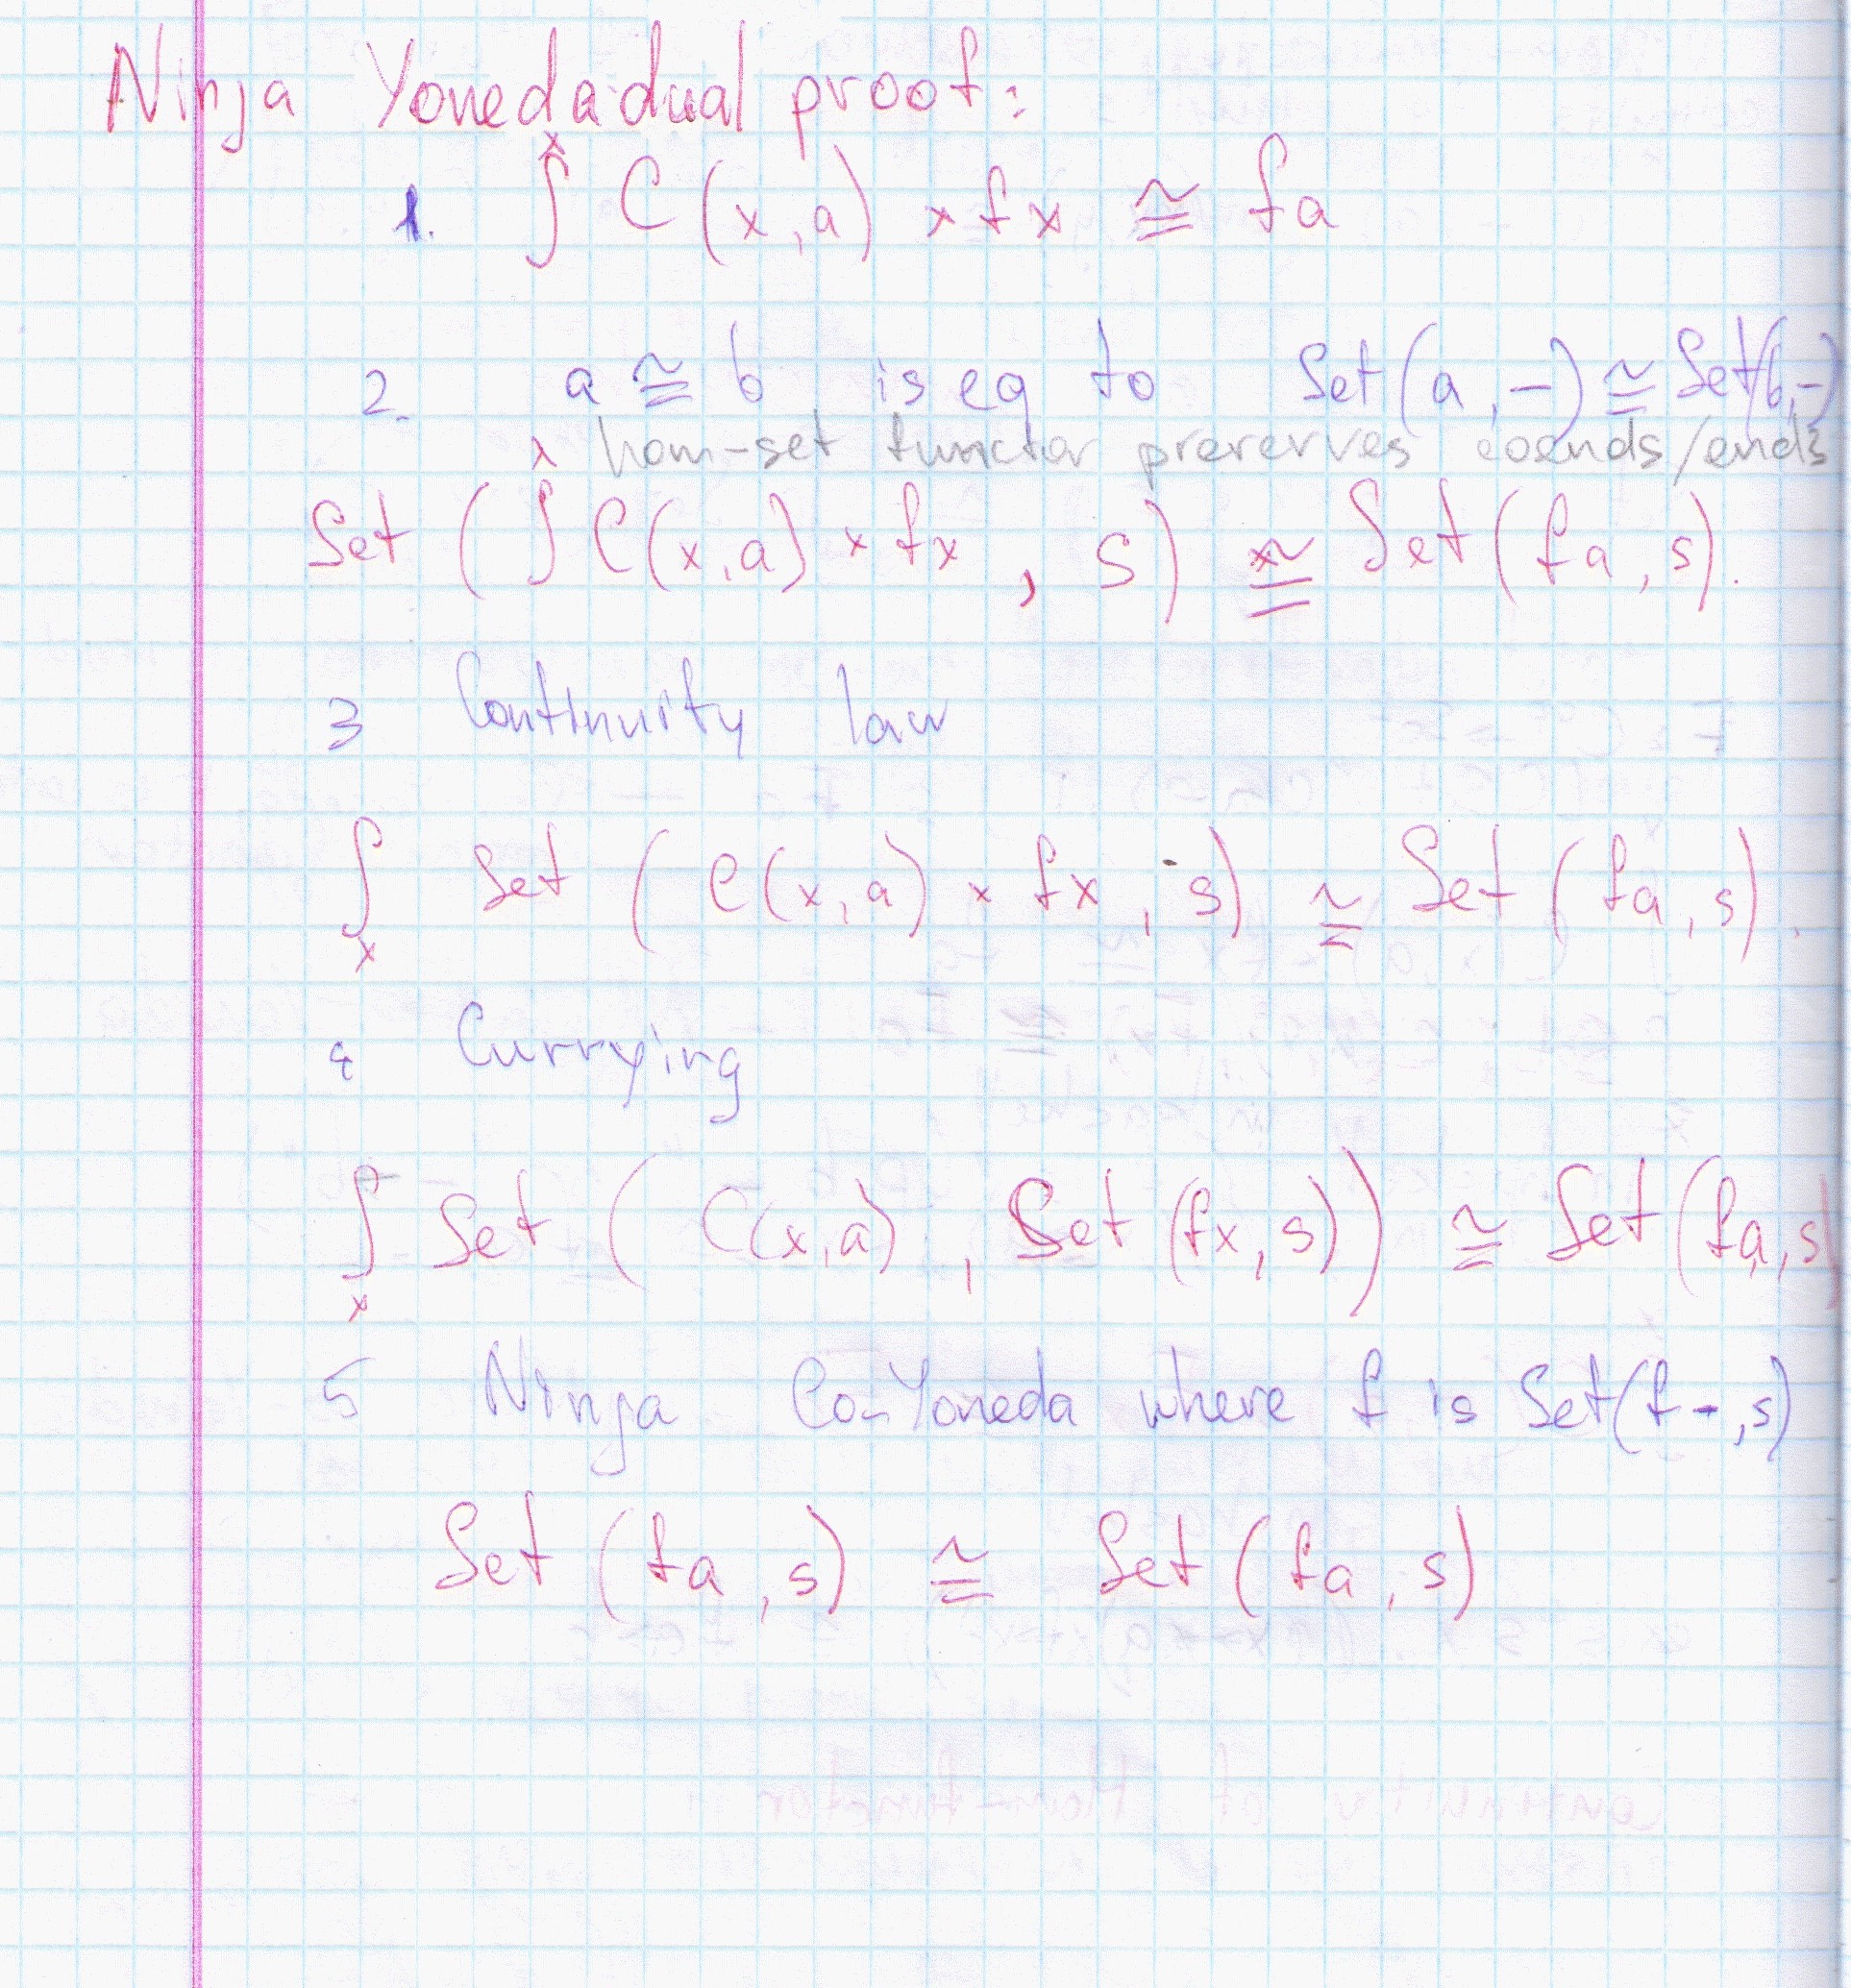 Ninja Yoneda dual proof:
1. ∫^x C(x,a) × fx ≅ fa
2. a ≅ b is eq to Set(a,−) ≅ Set(b,−)
hom-set functor prererves coends/ends
Set(∫^x C(x,a) × fx, s) ≅ Set(fa,s).
3 Continuity law
∫_x Set(C(x,a) × fx, s) ≅ Set(fa,s).
4 Currying
∫_x Set(C(x,a), Set(fx,s)) ≅ Set(fa,s)
5 Ninja Co-Yoneda where f is Set(f-,s)
Set(fa,s) ≅ Set(fa,s)